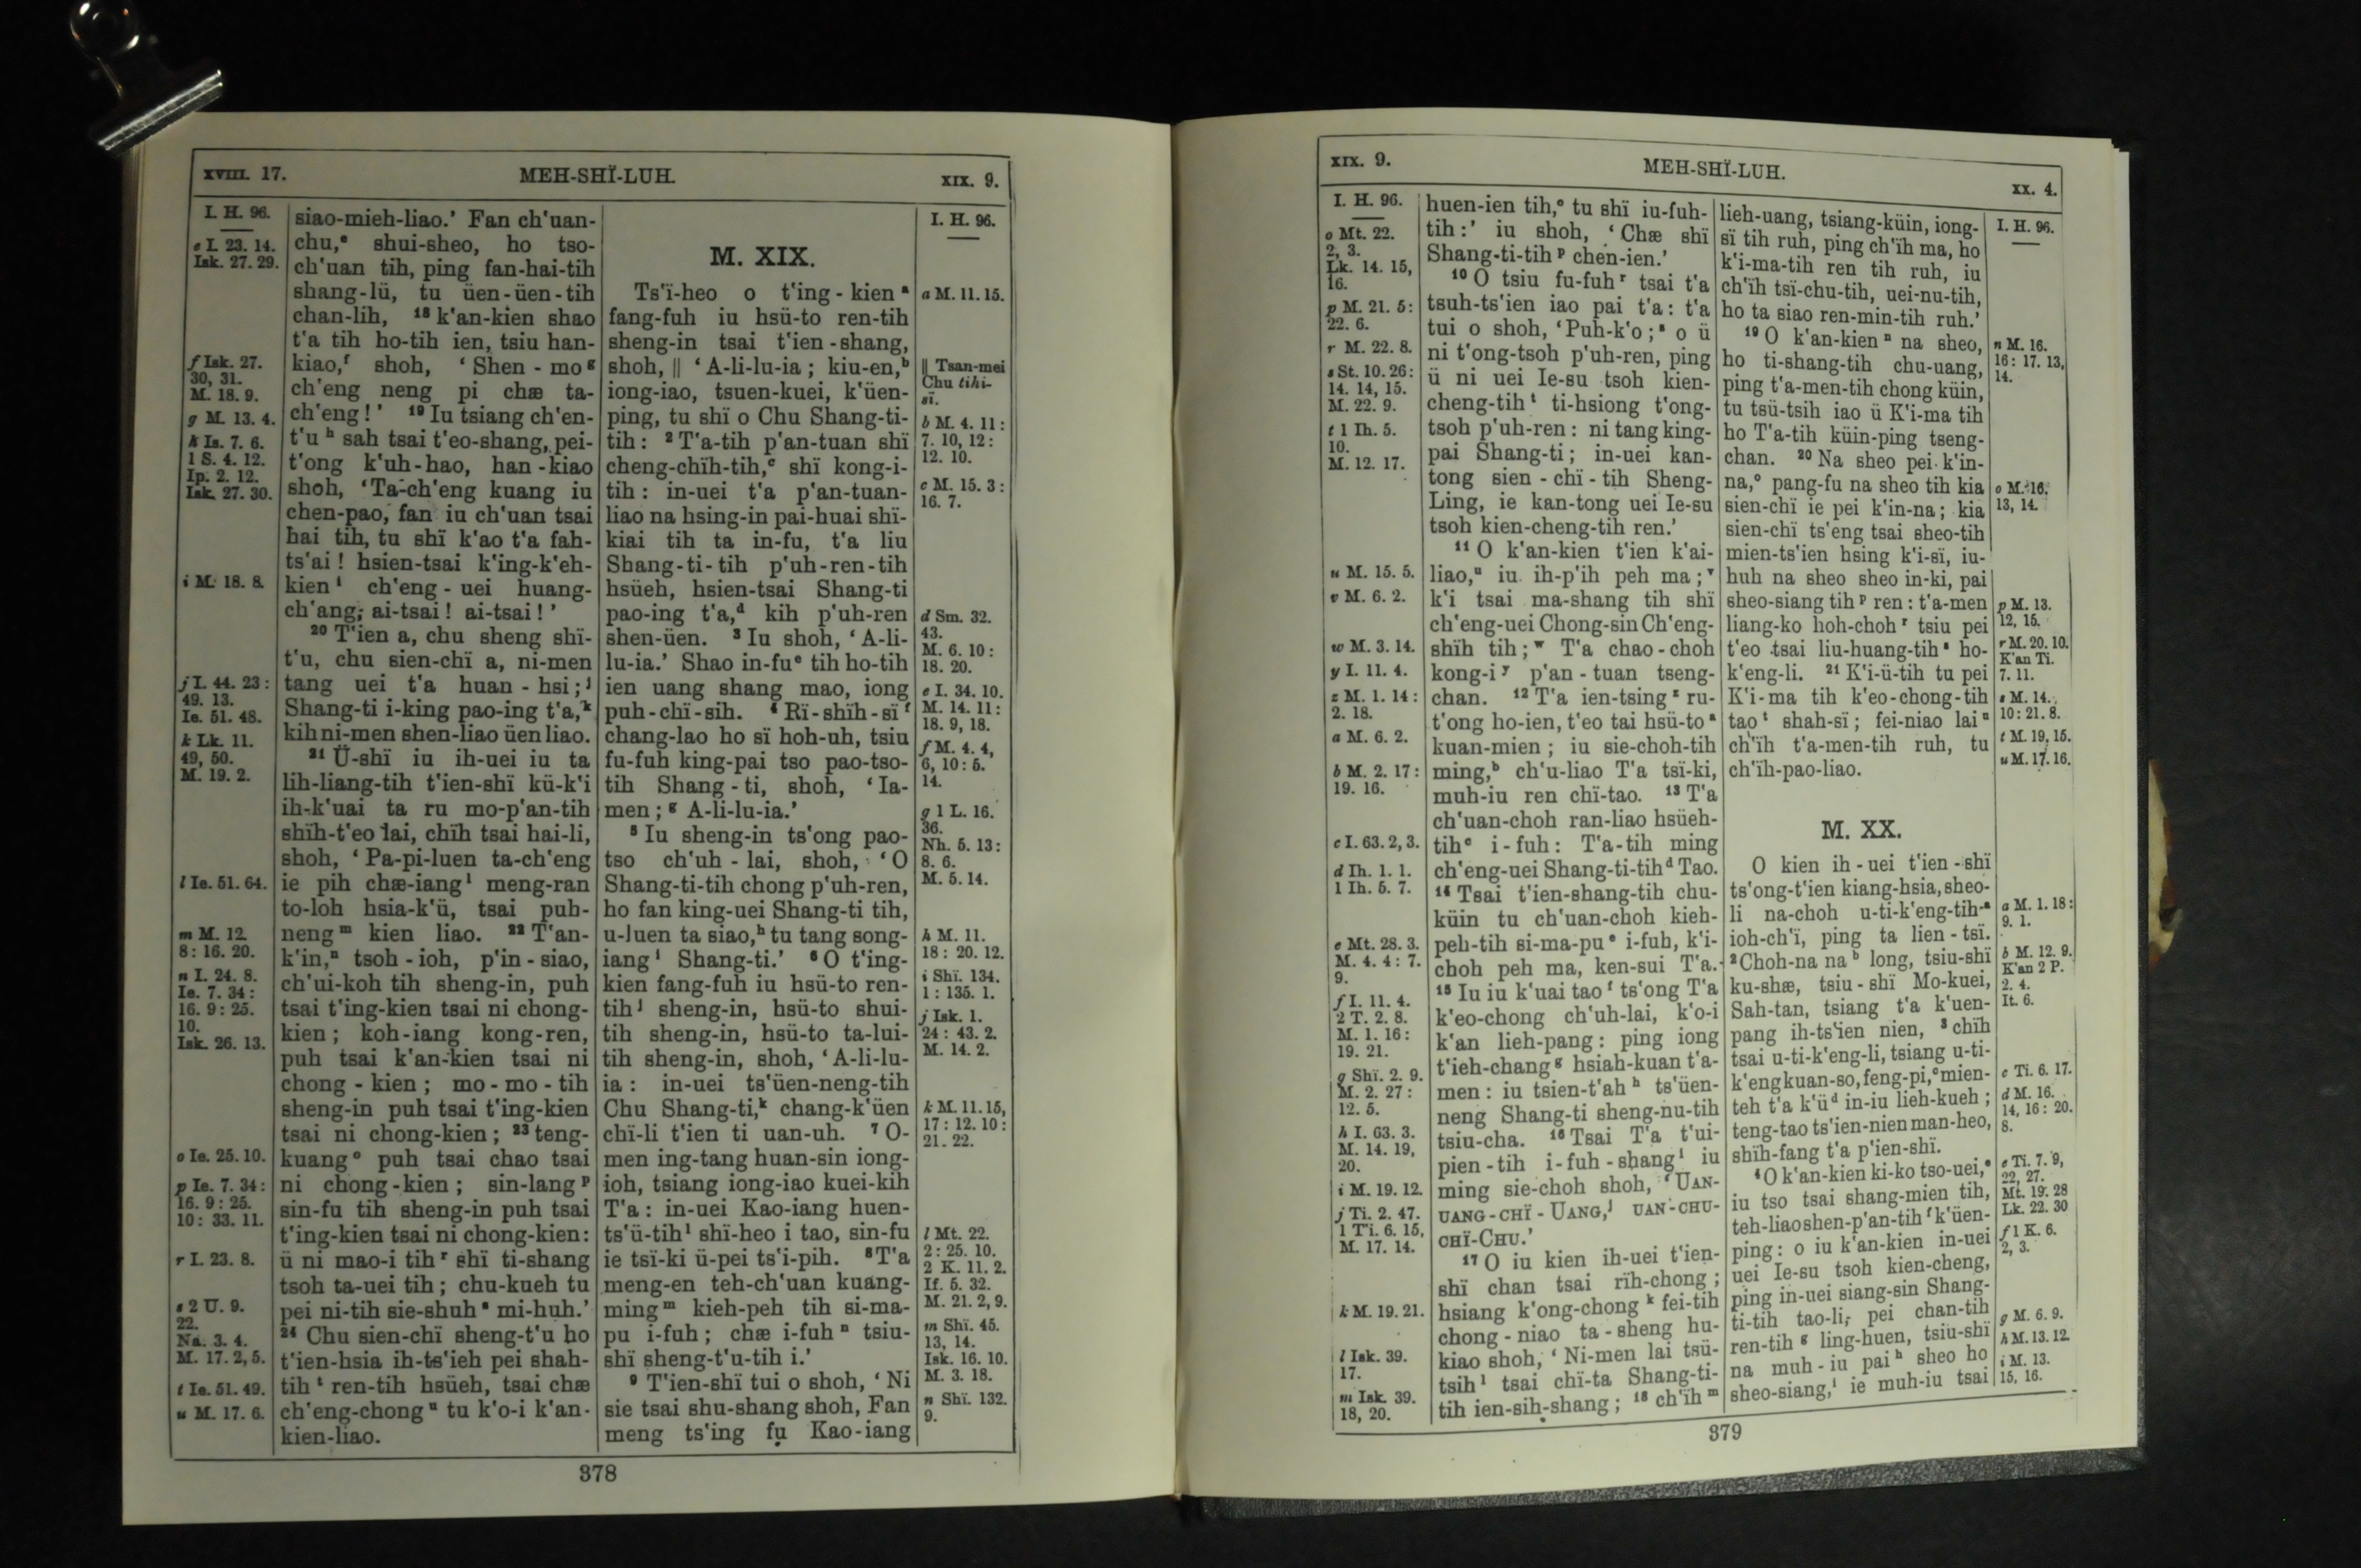 XVIII. 17.
MEH-SHÏ-LUH.
XIX. 9.
I. H. 96.
e I. 23. 14.
Isk. 27. 29.
f Isk. 27.
30, 31.
M. 18. 9.
g M. 13. 4.
h Is. 7. 6.
1 S. 4. 12.
Ip. 2. 12.
Isk. 27. 30.
i M. 18. 8.
j I. 44. 23 :
49. 13.
Ie. 51. 48.
k Lk. 11.
49, 50.
M. 19. 2.
l Ie. 51. 64.
m M. 12.
8 : 16. 20.
n I. 24. 8.
Ie. 7. 34 :
16. 9 : 25.
10.
Isk. 26. 13.
o Ie. 25. 10.
p Ie. 7. 34 :
16. 9 : 25.
10 : 33. 11.
r I. 23. 8.
s 2 U. 9.
22.
Na. 3. 4.
M. 17. 2, 5.
t Ie. 51. 49.
u M. 17. 6.
siao-mieh-liao.’ Fan ch‘uan-
chu,ᵉ shui-sheo, ho tso-
ch‘uan tih, ping fan-hai-tih
shang-lü, tu üen-üen-tih
chan-lih, ¹⁸ k‘an-kien shao
t‘a tih ho-tih ien, tsiu han-
kiao,ᶠ shoh, ‘ Shen - moᵍ
ch‘eng neng pi chæ ta-
ch‘eng ! ’ ¹⁹ Iu tsiang ch‘en-
t‘uʰ sah tsai t‘eo-shang, pei-
t‘ong k‘uh-hao, han-kiao
shoh, ‘Ta-ch‘eng kuang iu
chen-pao, fan iu ch‘uan tsai
hai tih, tu shï k‘ao t‘a fah-
ts‘ai ! hsien-tsai k‘ing-k‘eh-
kienⁱ ch‘eng - uei huang-
ch‘ang; ai-tsai ! ai-tsai ! ’
²⁰ T‘ien a, chu sheng shï-
t‘u, chu sien-chï a, ni-men
tang uei t‘a huan - hsi ;ʲ
Shang-ti i-king pao-ing t‘a,ᵏ
kih ni-men shen-liao üen liao.
²¹ Ü-shï iu ih-uei iu ta
lih-liang-tih t‘ien-shï kü-k‘i
ih-k‘uai ta ru mo-p‘an-tih
shïh-t‘eo lai, chïh tsai hai-li,
shoh, ‘ Pa-pi-luen ta-ch‘eng
ie pih chæ-iangˡ meng-ran
to-loh hsia-k‘ü, tsai puh-
nengᵐ kien liao. ²² T‘an-
k‘in,ⁿ tsoh - ioh, p‘in - siao,
ch‘ui-koh tih sheng-in, puh
tsai t‘ing-kien tsai ni chong-
kien ; koh-iang kong-ren,
puh tsai k‘an-kien tsai ni
chong - kien ; mo - mo - tih
sheng-in puh tsai t‘ing-kien
tsai ni chong-kien ; ²³ teng-
kuangᵒ puh tsai chao tsai
ni chong-kien ; sin-langᵖ
sin-fu tih sheng-in puh tsai
t‘ing-kien tsai ni chong-kien:
ü ni mao-i tihʳ shï ti-shang
tsoh ta-uei tih ; chu-kueh tu
pei ni-tih sie-shuhˢ mi-huh.’
²⁴ Chu sien-chï sheng-t‘u ho
t‘ien-hsia ih-ts‘ieh pei shah-
tihᵗ ren-tih hsüeh, tsai chæ
ch‘eng-chongᵘ tu k‘o-i k‘an-
kien-liao.
M. XIX.
Ts‘ï-heo o t‘ing - kienᵃ
fang-fuh iu hsü-to ren-tih
sheng-in tsai t‘ien-shang,
shoh, || ‘ A-li-lu-ia ; kiu-en,ᵇ
iong-iao, tsuen-kuei, k‘üen-
ping, tu shï o Chu Shang-ti-
tih : ² T‘a-tih p‘an-tuan shï
cheng-chïh-tih,ᶜ shï kong-i-
tih : in-uei t‘a p‘an-tuan-
liao na hsing-in pai-huai shï-
kiai tih ta in-fu, t‘a liu
Shang-ti-tih p‘uh-ren-tih
hsüeh, hsien-tsai Shang-ti
pao-ing t‘a,ᵈ kih p‘uh-ren
shen-üen. ³ Iu shoh, ‘ A-li-
lu-ia.’ Shao in-fuᵉ tih ho-tih
ien uang shang mao, iong
puh-chï-sih. ⁴ Rï-shïh-sïᶠ
chang-lao ho sï hoh-uh, tsiu
fu-fuh king-pai tso pao-tso-
tih Shang - ti, shoh, ‘ Ia-
men ;ᵍ A-li-lu-ia.’
⁵ Iu sheng-in ts‘ong pao-
tso ch‘uh - lai, shoh, ‘ O
Shang-ti-tih chong p‘uh-ren,
ho fan king-uei Shang-ti tih,
u-luen ta siao,ʰ tu tang song-
iangⁱ Shang-ti.’ ⁶ O t‘ing-
kien fang-fuh iu hsü-to ren-
tihʲ sheng-in, hsü-to shui-
tih sheng-in, hsü-to ta-lui-
tih sheng-in, shoh, ‘ A-li-lu-
ia : in-uei ts‘üen-neng-tih
Chu Shang-ti,ᵏ chang-k‘üen
chï-li t‘ien ti uan-uh. ⁷ O-
men ing-tang huan-sin iong-
ioh, tsiang iong-iao kuei-kih
T‘a : in-uei Kao-iang huen-
ts‘ü-tihˡ shï-heo i tao, sin-fu
ie tsï-ki ü-pei ts‘i-pih. ⁸ T‘a
meng-en teh-ch‘uan kuang-
mingᵐ kieh-peh tih si-ma-
pu i-fuh ; chæ i-fuhⁿ tsiu-
shï sheng-t‘u-tih i.’
⁹ T‘ien-shï tui o shoh, ‘ Ni
sie tsai shu-shang shoh, Fan
meng ts‘ing fu Kao-iang
I. H. 96.
a M. 11. 15.
|| Tsan-mei
Chu tihi-
sï.
b M. 4. 11 :
7. 10, 12 :
12. 10.
c M. 15. 3 :
16. 7.
d Sm. 32.
43.
M. 6. 10 :
18. 20.
e I. 34. 10.
M. 14. 11 :
18. 9, 18.
f M. 4. 4,
6, 10 : 5.
14.
g 1 L. 16.
36.
Nh. 5. 13 :
8. 6.
M. 5. 14.
h M. 11.
18 : 20. 12.
i Shï. 134.
1 : 135. 1.
j Isk. 1.
24 : 43. 2.
M. 14. 2.
k M. 11. 15,
17 : 12. 10 :
21. 22.
l Mt. 22.
2 : 25. 10.
2 K. 11. 2.
If. 5. 32.
M. 21. 2, 9.
m Shï. 45.
13, 14.
Isk. 16. 10.
M. 3. 18.
n Shï. 132.
9.
378
XIX. 9.
MEH-SHÏ-LUH.
XX. 4.
I. H. 96.
o Mt. 22.
2, 3.
Lk. 14. 15,
16.
p M. 21. 5 :
22. 6.
r M. 22. 8.
s St. 10. 26 :
14. 14, 15.
M. 22. 9.
t 1 Ih. 5.
10.
M. 12. 17.
u M. 15. 5.
v M. 6. 2.
w M. 3. 14.
y I. 11. 4.
z M. 1. 14 :
2. 18.
a M. 6. 2.
b M. 2. 17 :
19. 16.
c I. 63. 2, 3.
d Ih. 1. 1.
1 Ih. 5. 7.
e Mt. 28. 3.
M. 4. 4 : 7.
9.
f I. 11. 4.
2 T. 2. 8.
M. 1. 16 :
19. 21.
g Shï. 2. 9.
M. 2. 27 :
12. 5.
h I. 63. 3.
M. 14. 19,
20.
i M. 19. 12.
j Ti. 2. 47.
1 T‘i. 6. 15.
M. 17. 14.
k M. 19. 21.
l Isk. 39.
17.
m Isk. 39.
18, 20.
huen-ien tih,ᵒ tu shï iu-fuh-
tih :’ iu shoh, ‘ Chæ shï
Shang-ti-tihᵖ chen-ien.’
¹⁰ O tsiu fu-fuhʳ tsai t‘a
tsuh-ts‘ien iao pai t‘a : t‘a
tui o shoh, ‘Puh-k‘o ;ˢ o ü
ni t‘ong-tsoh p‘uh-ren, ping
ü ni uei Ie-su tsoh kien-
cheng-tihᵗ ti-hsiong t‘ong-
tsoh p‘uh-ren : ni tang king-
pai Shang-ti ; in-uei kan-
tong sien - chï - tih Sheng-
Ling, ie kan-tong uei Ie-su
tsoh kien-cheng-tih ren.’
¹¹ O k‘an-kien t‘ien k‘ai-
liao,ᵘ iu ih-p‘ih peh ma ;ᵛ
k‘i tsai ma-shang tih shï
ch‘eng-uei Chong-sin Ch‘eng-
shïh tih ;ʷ T‘a chao-choh
kong-iʸ p‘an - tuan tseng-
chan. ¹² T‘a ien-tsingᶻ ru-
t‘ong ho-ien, t‘eo tai hsü-toᵃ
kuan-mien ; iu sie-choh-tih
ming,ᵇ ch‘u-liao T‘a tsï-ki,
muh-iu ren chï-tao. ¹³ T‘a
ch‘uan-choh ran-liao hsüeh-
tihᶜ i-fuh : T‘a-tih ming
ch‘eng-uei Shang-ti-tihᵈ Tao.
¹⁴ Tsai t‘ien-shang-tih chu-
küin tu ch‘uan-choh kieh-
peh-tih si-ma-puᵉ i-fuh, k‘i-
choh peh ma, ken-sui T‘a.
¹⁵ Iu iu k‘uai taoᶠ ts‘ong T‘a
k‘eo-chong ch‘uh-lai, k‘o-i
k‘an lieh-pang : ping iong
t‘ieh-changᵍ hsiah-kuan t‘a-
men : iu tsien-t‘ahʰ ts‘üen-
neng Shang-ti sheng-nu-tih
tsiu-cha. ¹⁶ Tsai T‘a t‘ui-
pien-tih i-fuh-shangⁱ iu
ming sie-choh shoh, ‘ UAN-
UANG-CHÏ-UANG,ʲ UAN-CHU-
CHÏ-CHU.’
¹⁷ O iu kien ih-uei t‘ien-
shï chan tsai rïh-chong ;
hsiang k‘ong-chongᵏ fei-tih
chong - niao ta - sheng hu-
kiao shoh, ‘ Ni-men lai tsü-
tsihˡ tsai chï-ta Shang-ti-
tih ien-sih-shang ; ¹⁸ ch‘ïhᵐ
lieh-uang, tsiang-küin, iong-
sï tih ruh, ping ch‘ïh ma, ho
k‘i-ma-tih ren tih ruh, iu
ch‘ïh tsï-chu-tih, uei-nu-tih,
ho ta siao ren-min-tih ruh.’
¹⁹ O k‘an-kienⁿ na sheo,
ho ti-shang-tih chu-uang,
ping t‘a-men-tih chong küin,
tu tsü-tsih iao ü K‘i-ma tih
ho T‘a-tih küin-ping tseng-
chan. ²⁰ Na sheo pei k‘in-
na,ᵒ pang-fu na sheo tih kia
sien-chï ie pei k‘in-na ; kia
sien-chï ts‘eng tsai sheo-tih
mien-ts‘ien hsing k‘i-sï, iu-
huh na sheo sheo in-ki, pai
sheo-siang tihᵖ ren : t‘a-men
liang-ko hoh-chohʳ tsiu pei
t‘eo tsai liu-huang-tihˢ ho-
k‘eng-li. ²¹ K‘i-ü-tih tu pei
K‘i-ma tih k‘eo-chong-tih
taoᵗ shah-sï ; fei-niao laiᵘ
ch‘ïh t‘a-men-tih ruh, tu
ch‘ïh-pao-liao.
M. XX.
O kien ih-uei t‘ien-shï
ts‘ong-t‘ien kiang-hsia, sheo-
li na-choh u-ti-k‘eng-tihᵃ
ioh-ch‘ï, ping ta lien-tsï.
² Choh-na naᵇ long, tsiu-shï
ku-shæ, tsiu - shï Mo-kuei,
Sah-tan, tsiang t‘a k‘uen-
pang ih-ts‘ien nien, ³ chïh
tsai u-ti-k‘eng-li, tsiang u-ti-
k‘eng kuan-so, feng-pi,ᶜ mien-
teh t‘a k‘üᵈ in-iu lieh-kueh ;
teng-tao ts‘ien-nien man-heo,
shïh-fang t‘a p‘ien-shï.
⁴ O k‘an-kien ki-ko tso-uei,ᵉ
iu tso tsai shang-mien tih,
teh-liao shen-p‘an-tihᶠ k‘üen-
ping : o iu k‘an-kien in-uei
uei Ie-su tsoh kien-cheng,
ping in-uei siang-sin Shang-
ti-tih tao-li, pei chan-tih
ren-tihᵍ ling-huen, tsiu-shï
na muh - iu paiʰ sheo ho
sheo-siang,ⁱ ie muh-iu tsai
I. H. 96.
n M. 16.
16 : 17. 13,
14.
o M. 16.
13, 14.
p M. 13.
12, 15.
r M. 20. 10.
K‘an Ti.
7. 11.
s M. 14.
10 : 21. 8.
t M. 19, 15.
u M. 17. 16.
a M. 1. 18 :
9. 1.
b M. 12. 9.
K‘an 2 P.
2. 4.
It. 6.
c Ti. 6. 17.
d M. 16.
14, 16 : 20.
8.
e Ti. 7. 9,
22, 27.
Mt. 19. 28
Lk. 22. 30
f 1 K. 6.
2, 3.
g M. 6. 9.
h M. 13. 12.
i M. 13.
15, 16.
379